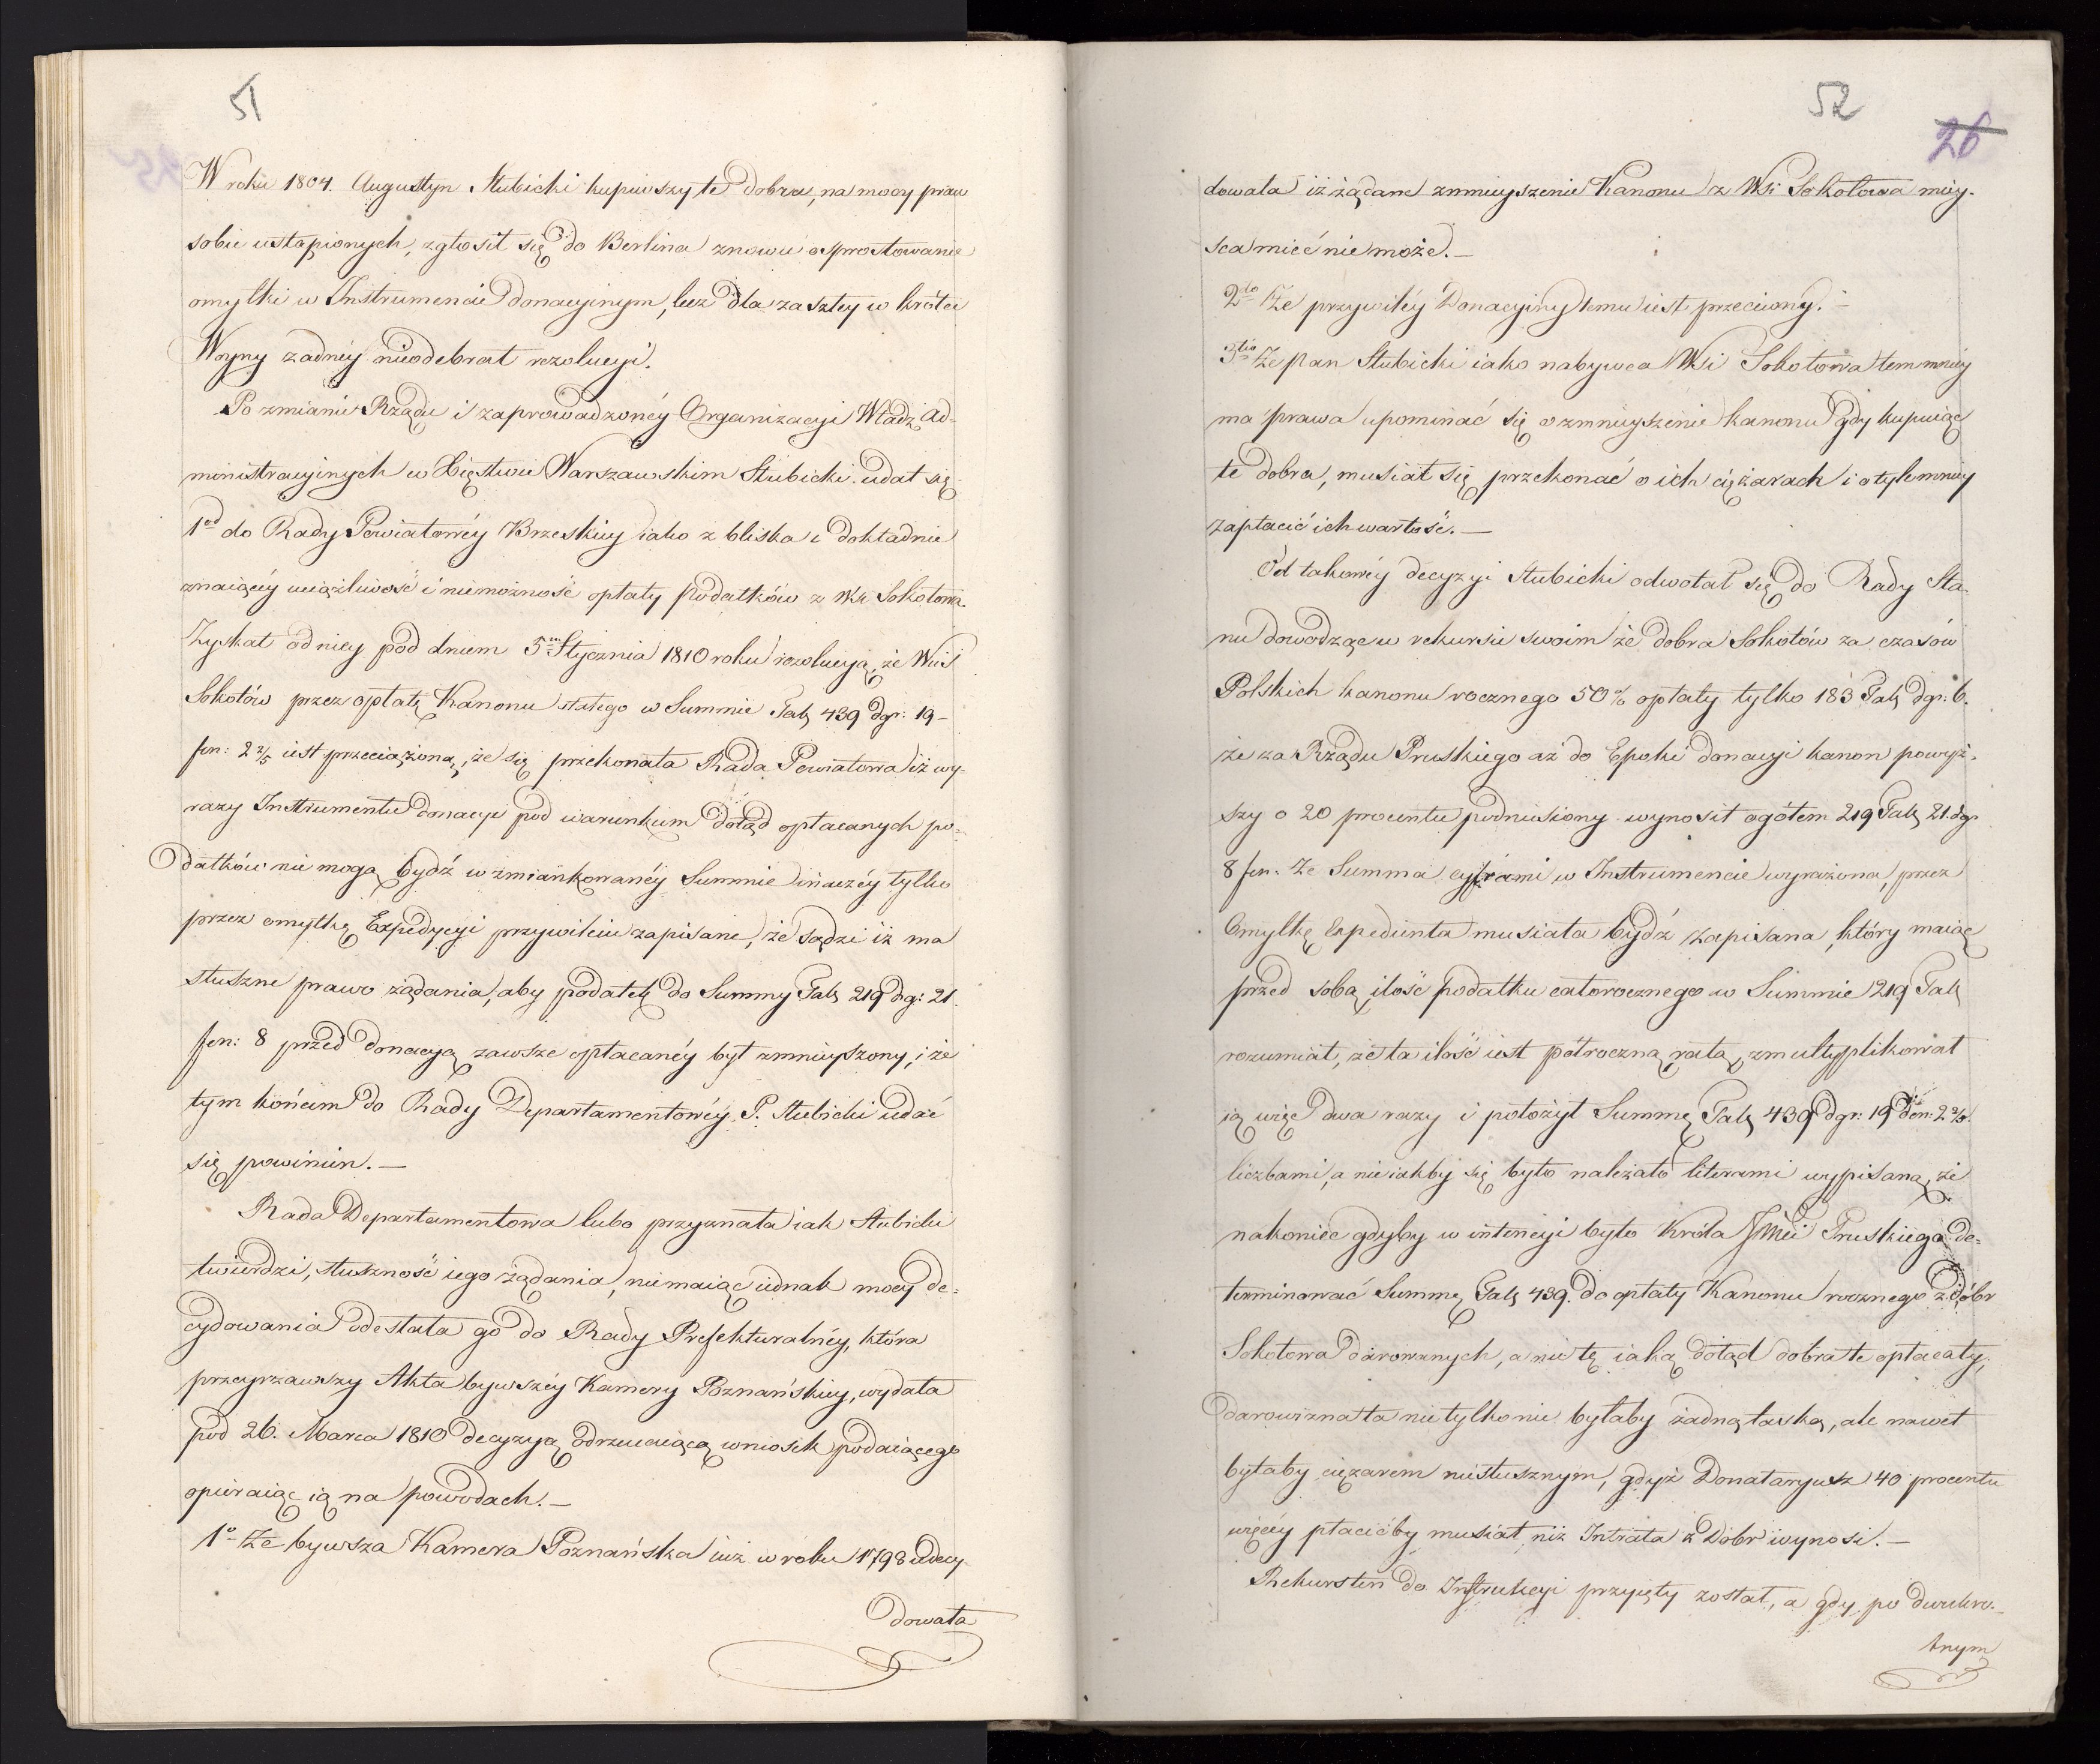 51
W roku 1804. Augustyn Słubicki kupiwszy te dobra, na mocy praw
sobie ustąpionych, zgłosił się do Berlina znowu o sprostowanie
omyłki w Instrumencie donacyinym, lecz dla zaszłey w krótce
Woyny żadnéy nieodebrał rezolucyi.
Po zmianie Rządu i zaprowadzonéy Organizacyi Władz Ad-
ministracyinych w Xięstwie Warszawskim Słubicki udał się
1od do Rady Powiatowéy Brzeskiey iako z bliska i dokładnie
znaiącéy uciążliwość i niemożność opłaty podatków z Wsi Sokołowa.
Zyskał od niey pod dniem 5m Stycznia 1810 roku rezolucyą, że Wieś
Sokołów przez opłatę Kanonu stałego w Summie Tal. 439 dgr: 19-
fen: 2 2/5 iest przeciążoną, że się przekonała Rada Powiatowa iż wy-
razy Instrumentu donacyi pod warunkiem dotąd opłacanych po-
datków nie mogą bydź w zmiankowanéy Summie inaczéy tylko
przez omyłkę Expedycyi przywileiu zapisane, że sądzi iż ma
słuszne prawo żądania, aby podatek do Summy Tal. 219 dgr: 21.
fen: 8 przed donacyą zawsze opłacanéy był zmnieyszony, i że
tym końcem do Rady Departamentowéy P. Słubicki udać
się powinien. —
Rada Departamentowa lubo przyznała iak Słubicki
twierdzi, słuszność iego żądania, niemaiąc iednak mocy de-
cydowania odesłała go do Rady Prefekturalnéy, która
przeyrzawszy Akta bywszéy Kamery Poznańskiey, wydała
pod 26. Marca 1810 decyzyą odrzucaiącą wniosek podaiącego
opieraiąc ią na powodach. —
1o Że bywsza Kamera Poznańska iuż w roku 1798 zdecy-
dowała
52
26
dowała iż żądane zmnieyszenie Kanonu z Wsi Sokołowa miey-
sca mieć nie może. —
2do Że przywiléy Donacyiny temu iest przeciwny. —
3tio Że pan Słubicki iako nabywca Wsi Sokołowa tem mniéy
ma prawa upominać się o zmnieyszenie kanonu gdy kupuiąc
te dobra, musiał się przekonać o ich ciężarach i o tyle mniéy
zapłacić ich wartość. —
Od takowéy decyzyi Słubicki odwołał się do Rady Sta-
nu dowodząc w rekursie swoim że dobra Sokołów za czasów
Polskich kanonu rocznego 50% opłaty tylko 183 Tal. dgr: 6.
że za Rządu Pruskiego aż do Epoki donacyi kanon powyż-
szy o 20 procentu podniesiony wynosił ogółem 219 Tal. 21. dgr
8 fen. Że Summa cyframi w Instrumencie wyrażona, przez
Omyłkę Expedienta musiała bydź zapisana, który maiąc
przed sobą ilość podatku całorocznego w Summie 219 Tal.
rozumiał, że ta ilość iest półroczną ratą, zmultyplikował
ią więc dwa razy i położył Summę Tal. 439 dgr: 19 den: 2 2/5.
liczbami, a nie iakby się było należało literami wypisaną, że
nakoniec gdyby w intencyi było Króla Jmci Pruskiego de-
terminować Summę Tal. 439. do opłaty Kanonu rocznego z dóbr
Sokołowa darowanych, a nie tę iaką dotąd dobra te opłacały,
darowizna ta nie tylko nie byłaby żadną łaską, ale nawet
byłaby ciężarem niesłusznym, gdyż Donataryusz 40 procentu
więcéy płacićby musiał niż Intrata z Dóbr wynosi. —
Rekurs ten do Instrukcyi przyięty został, a gdy po dwukro-
tnym